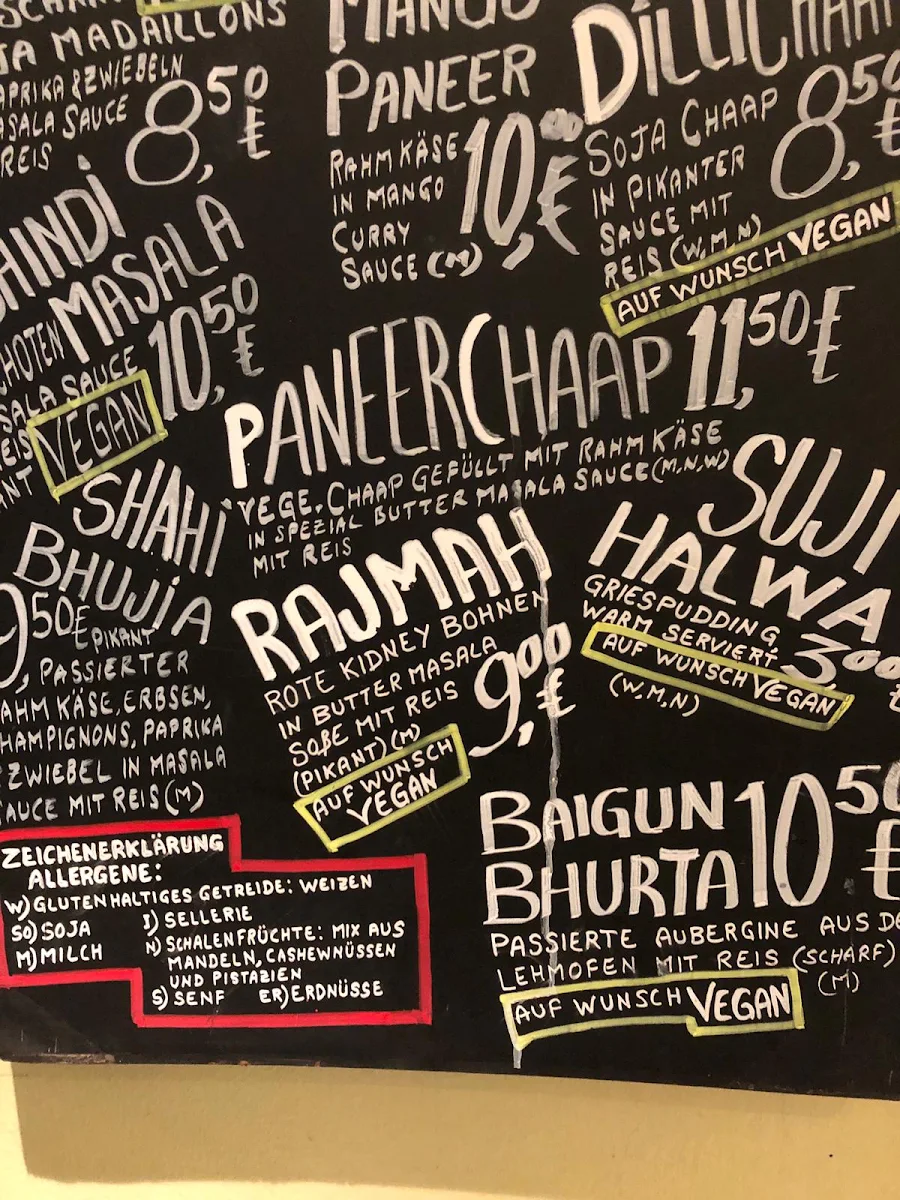 JA MADAILLONS
APRIKA & ZWIEBELN
ASALA SAUCE
REIS
8,50 €
MANGO
PANEER
RAHMKÄSE
IN MANGO
CURRY
SAUCE (M)
10,00 €
DILLI CHAAP
SOJA CHAAP
IN PIKANTER
SAUCE MIT
REIS (W,M,N)
8,50 €
AUF WUNSCH VEGAN
HINDI
MASALA
CHOTEN
SALA SAUCE
REIS
ANT
VEGAN
10,50 €
PANEER CHAAP 11,50 €
VEGE. CHAAP GEFÜLLT MIT RAHMKÄSE
IN SPEZIAL BUTTER MASALA SAUCE (M,N,W)
MIT REIS
SHAHI
BHUJIA
9,50 €
PIKANT
PASSIERTER
AHM KÄSE, ERBSEN,
HAMPIGNONS, PAPRIKA
ZWIEBEL IN MASALA
AUCE MIT REIS (M)
RAJMAH
ROTE KIDNEY BOHNEN
IN BUTTER MASALA
SOßE MIT REIS
(PIKANT) (M)
9,00 €
AUF WUNSCH
VEGAN
SUJI
HALWA
GRIESPUDDING
WARM SERVIERT
3,00 €
AUF WUNSCH VEGAN
(W,M,N)
BAIGUN
BHURTA
10,50 €
PASSIERTE AUBERGINE AUS DE
LEHMOFEN MIT REIS (SCHARF)
(M)
AUF WUNSCH VEGAN
ZEICHENERKLÄRUNG
ALLERGENE:
W) GLUTENHALTIGES GETREIDE: WEIZEN
SO) SOJA
M) MILCH
I) SELLERIE
N) SCHALENFRÜCHTE: MIX AUS
MANDELN, CASHEWNÜSSEN
UND PISTAZIEN
S) SENF ER) ERDNÜSSE